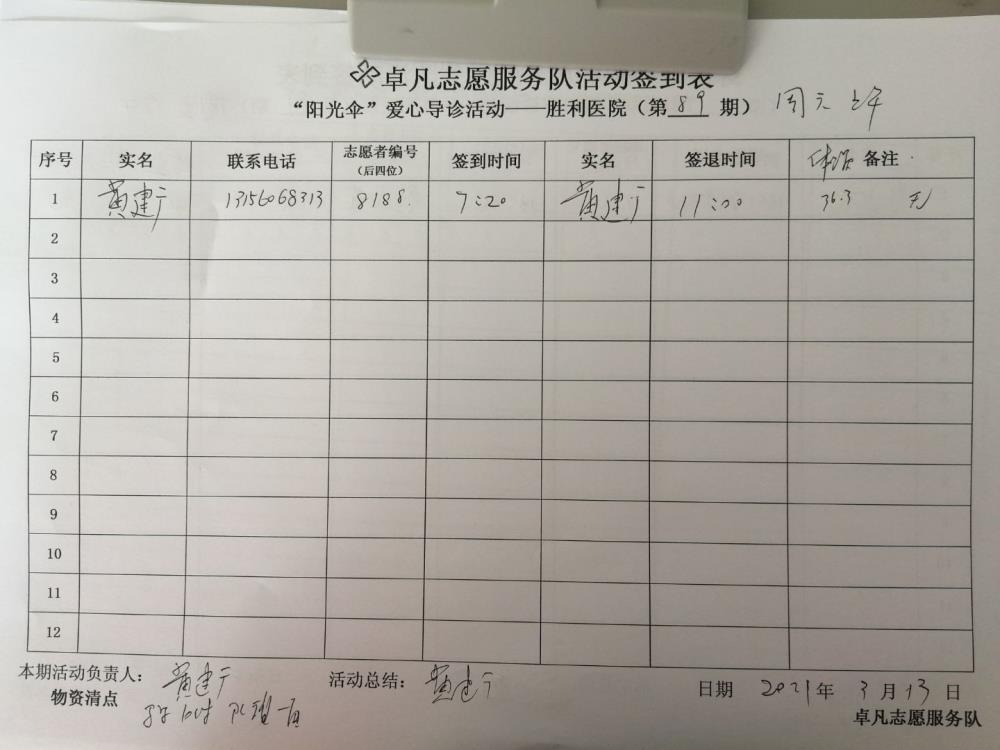 卓凡志愿服务队活动签到表
“阳光伞”爱心导诊活动——胜利医院（第 89 期） 周六 上午
序号 实名 联系电话 志愿者编号（后四位） 签到时间 实名 签退时间 体温 备注
1 黄建广 13156068313 8188 7:20 黄建广 11:00 36.3 无
2
3
4
5
6
7
8
9
10
11
12
本期活动负责人： 黄建广 活动总结： 黄建广
日期 2021 年 3 月 13 日
物资清点
卓凡志愿服务队